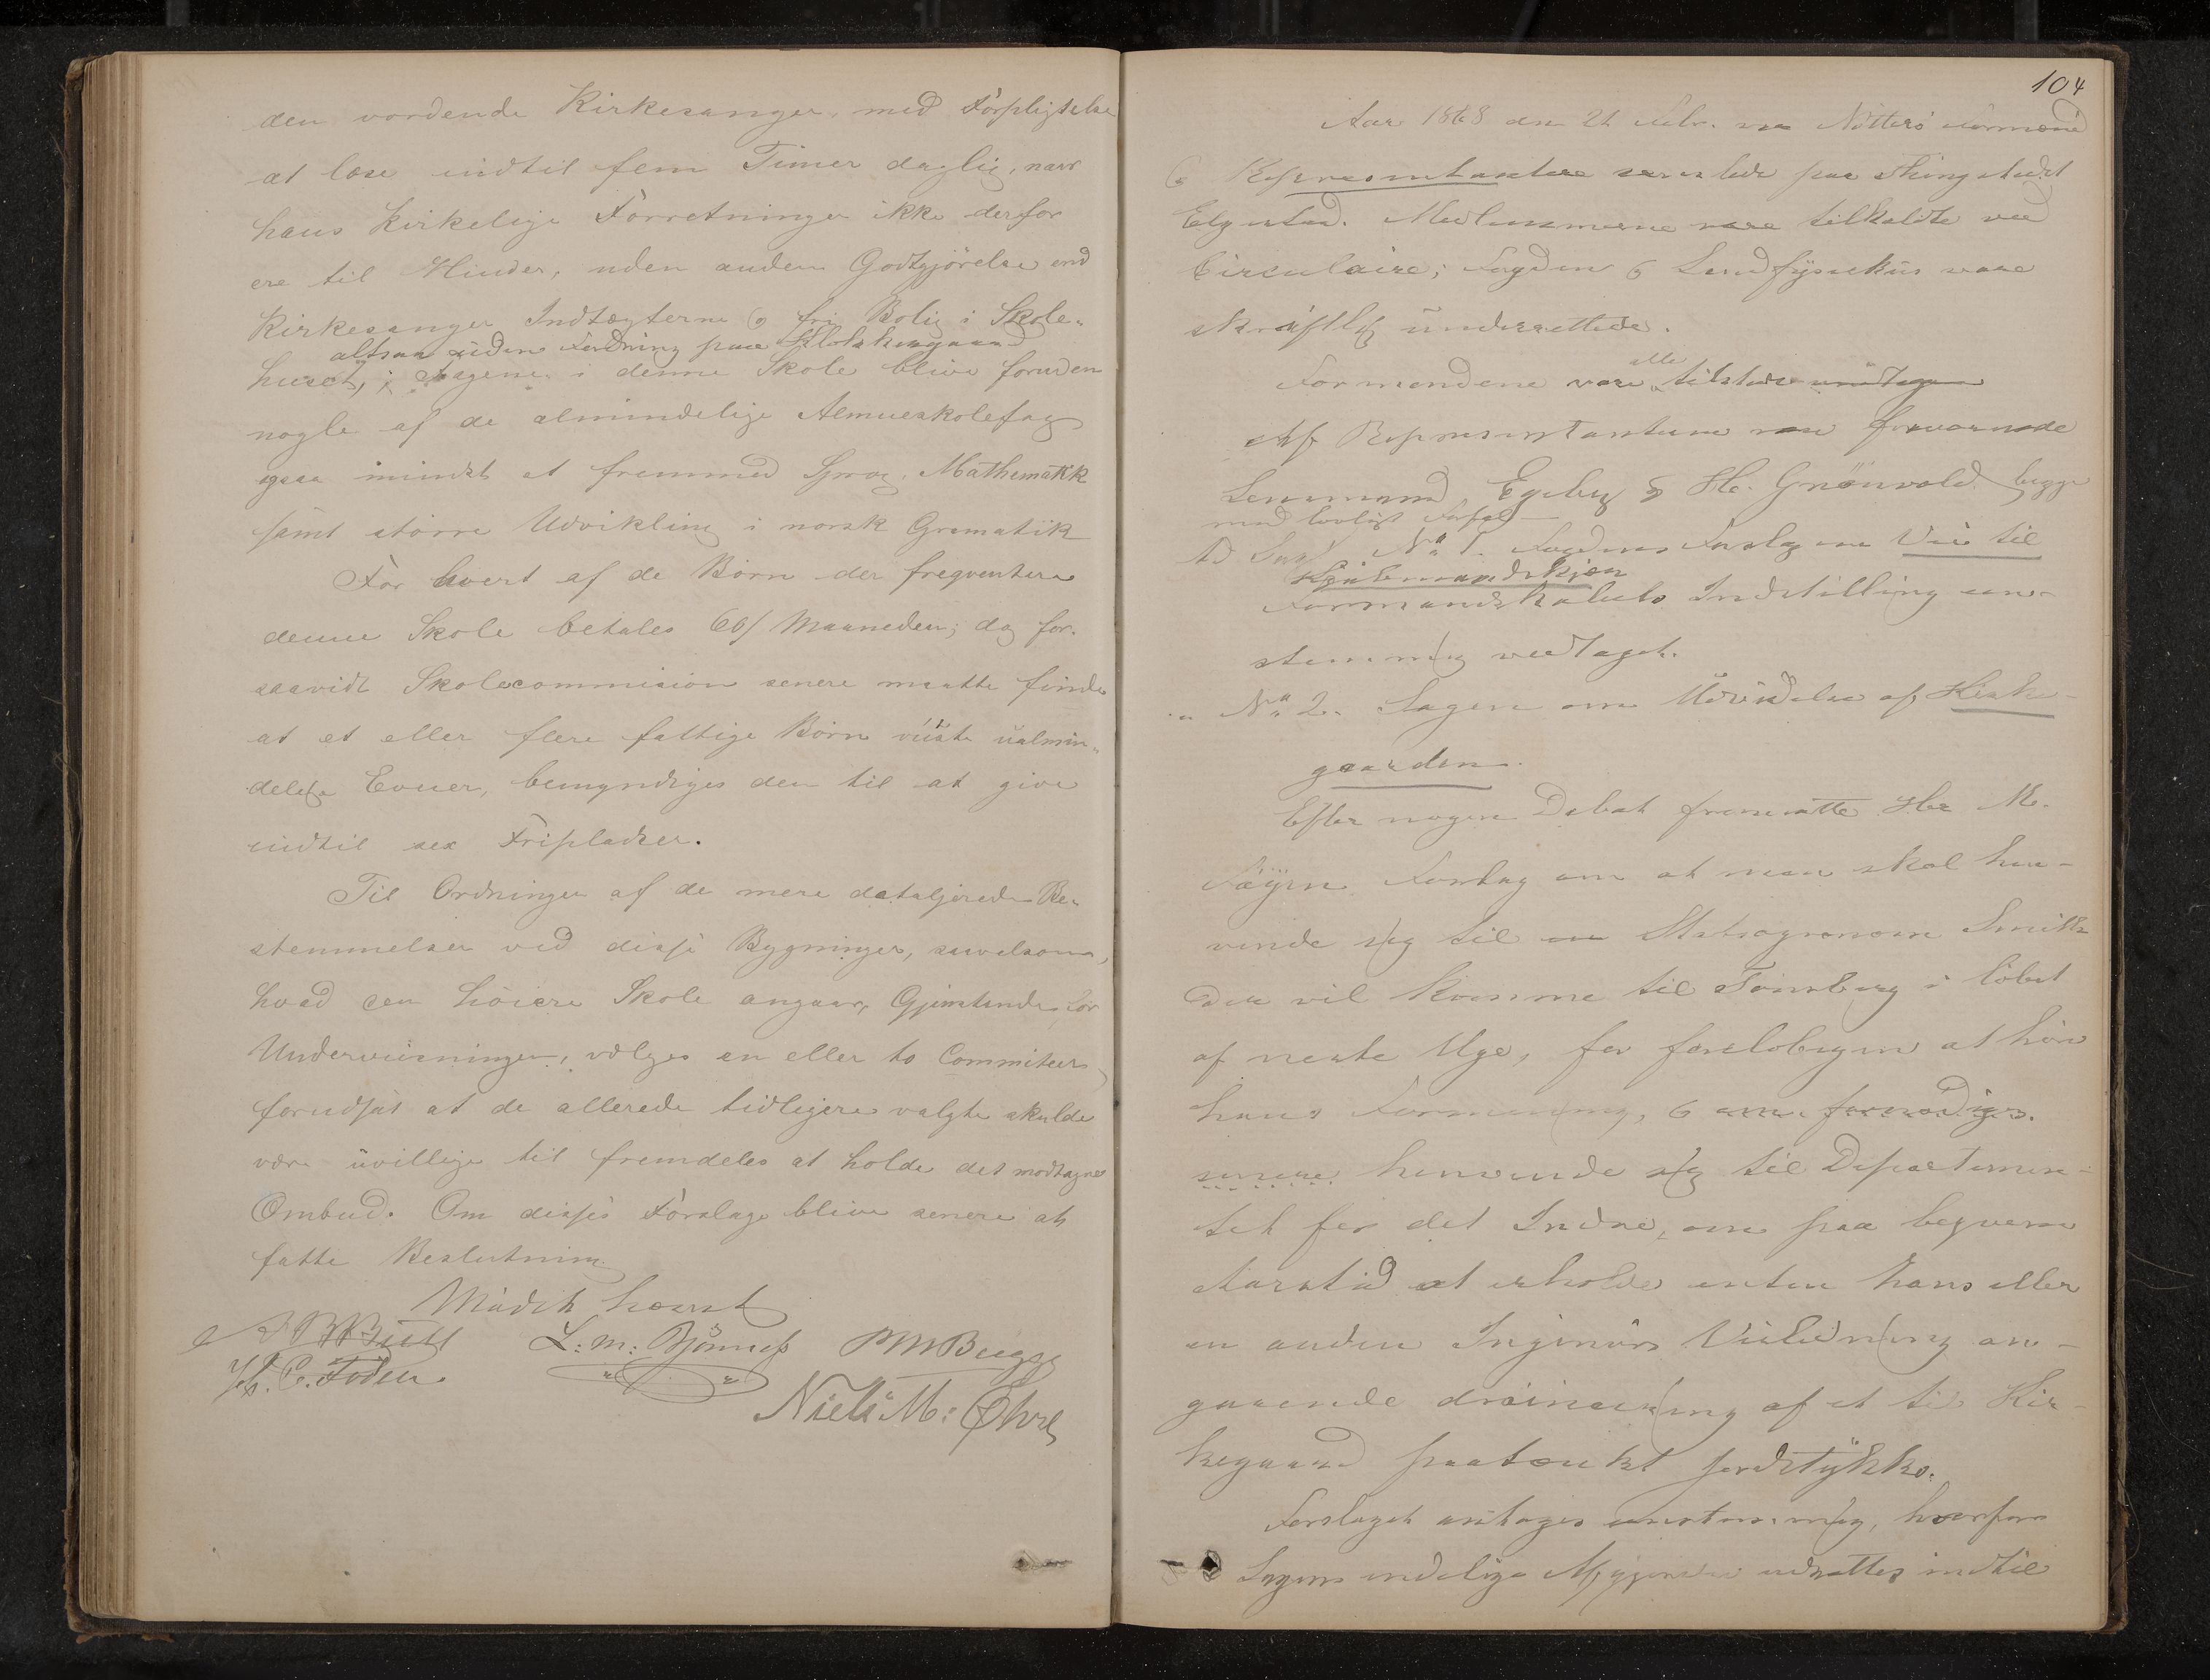 den vordende Kirkesanger, med Forpligtelse
at læse indtil fem Timer daglig, naar
hans kirkelige Forretninger ikke derfor
ere til Hinder, uden anden Godtgjörelse end
Kirkesanger Indtægterne og fri Bolig i Skole-
altsaa uden Fordring paa Klokkergaard
huset, i Fagene i denne Skole blive foruden
nogle af de almindelige Almueskolefag
ogsaa mindst et fremmed Sprog, Mathematik
samt större Udvikling i norsk Gramatik
For hvert af de Börn der freqventere
denne Skole betales 60/ Maaneden; dog for-
saavidt Skolecommision senere maatte finde
at et eller flere fattige Börn viiste üalmin-
delige Evner, bemyndiges den til at give
indtil sex Fripladser.
Til Ordningen af de mere detaljerede Be-
stemmelser ved disse Bygninger, saavelsom,
hvad den höiere Skole angaar, Gjenstande for
Underviisningen, vælges en eller to Commiteer,
forudsat at de allerede tidligere valgte skulde
være üvillige til fremdeles at holde det modtagne
Ombud. Om disse Forslage blive senere at
fatte Beslutning.
Mödet hævet
L: M: Bjönnes PMBugge
H. C. Foden
Niels M: Ohre
104
Aar 1868 den 21 Febr. var Nötterö Formænd
& Repræsentantere samlede paa Thingstedet
Elgestad. Medlemmerne vare tilkaldte ved
Circulaire; Fogden & Landfysikus vare
skriftlig underrettede.
alle
Formændene vare tilstede undtagen
Af Repræsentanterne var fraværende
Lensmand Egeby & H. Grönvold begge
med lovligt Forfald
Ad Sag No 1. Fogdens Forslag om Vei til
Kjöbmandskjær
Formandskabets Indstilling een-
stemmig vedtaget.
" No 2. Sagen om Udvidelse af Kirke-
gaarden.
Efter nogen Debat fremsatte Her M.
Föyen Forslag om at man skal hen-
vende sig til en Statsagronom Smith
der vil komme til Tönsberg i löbet
af neste Uge, for forelöbigen at höre
hans Formening, & om fornödiges
senere henvende sig til Departemen-
tet for det Indre, om paa beqvem
Aarstid at erholde enten hans eller
en anden Ingeniörs Veiledning an-
gaaende drainering af et til Kir-
kegaard paatænkt Jordstykke.
Forslaget antages eenstemmig, hvorfor
Ingen endelige Afgjörelse udsattes indtil